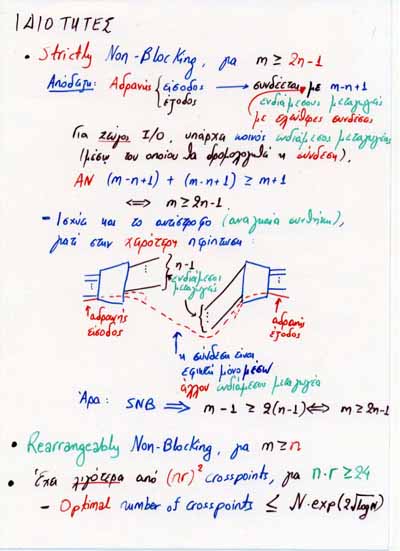 ΙΔΙΟΤΗΤΕΣ
• Strictly Non-Blocking, για m ≥ 2n-1
Απόδειξη: Αδρανής { είσοδος → συνδέεται με m-n+1
έξοδος ενδιάμεσους μεταγωγείς
με ελεύθερες συνδέσεις
Για ζεύγος I/O, υπάρχει κοινός ενδιάμεσος μεταγωγέας
(μέσω του οποίου θα δρομολογηθεί η σύνδεση),
ΑΝ (m-n+1) + (m-n+1) ≥ m+1
⟺ m ≥ 2n-1.
- Ισχύει και το αντίστροφο (αναγκαία συνθήκη),
γιατί στην χειρότερη περίπτωση:
n-1
ενδιάμεσοι
μεταγωγείς
αδρανής
είσοδος
αδρανής
έξοδος
η σύνδεση είναι
εφικτή μόνο μέσω
άλλου ενδιάμεσου μεταγωγέα
Άρα: SNB ⟹ m-1 ≥ 2(n-1) ⟺ m ≥ 2n-1
• Rearrangeably Non-Blocking, για m ≥ n
• Έχει λιγότερα από (nr)² crosspoints, για n·r ≥ 24
- Optimal number of crosspoints ≤ N·exp(2√logN)